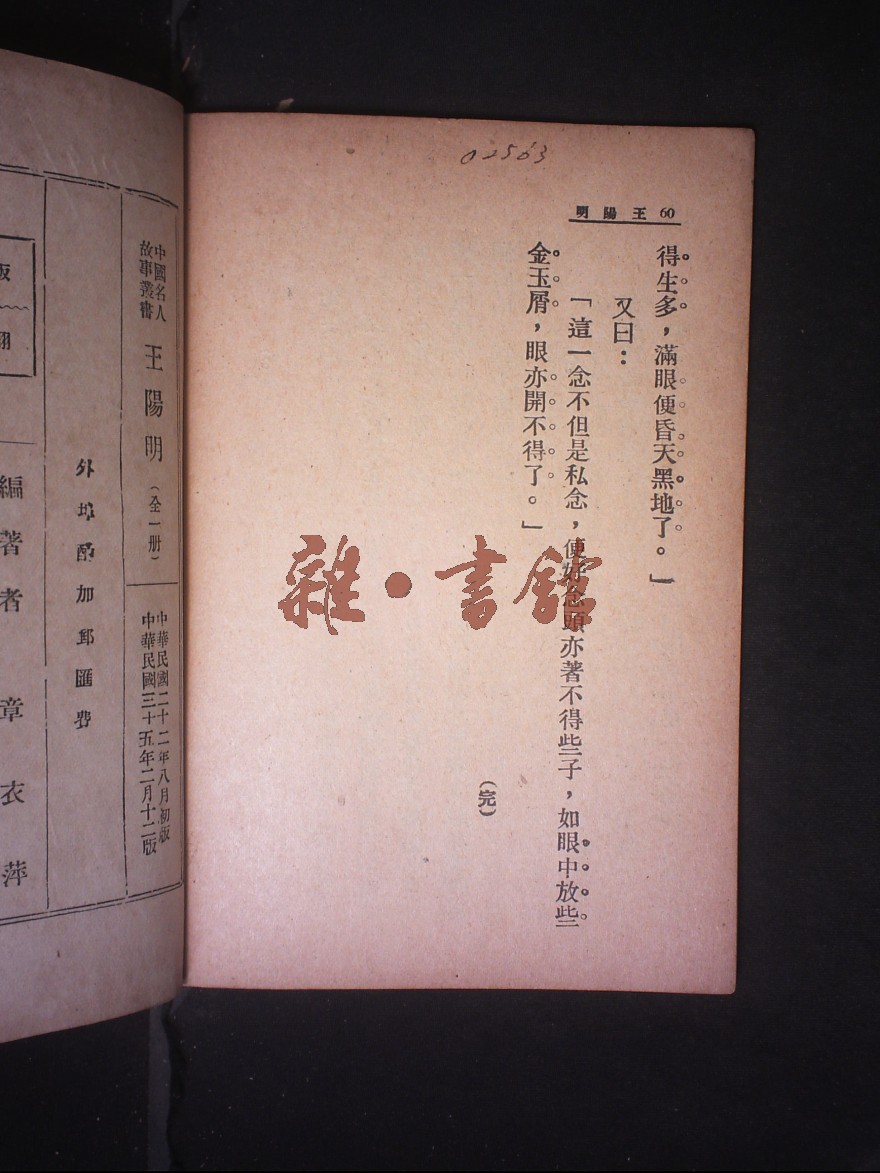 02563
60 王陽明
得生多，滿眼便昏天黑地了。」
又曰：
「這一念不但是私念，便好念頭亦著不得些子，如眼中放些
金玉屑，眼亦開不得了。」
（完）
雜·書館
中國名人
故事叢書
王陽明（全一册）
中華民國二十二年八月初版
中華民國三十五年二月十二版
外埠酌加郵匯費
編著者 章衣萍
版
翻